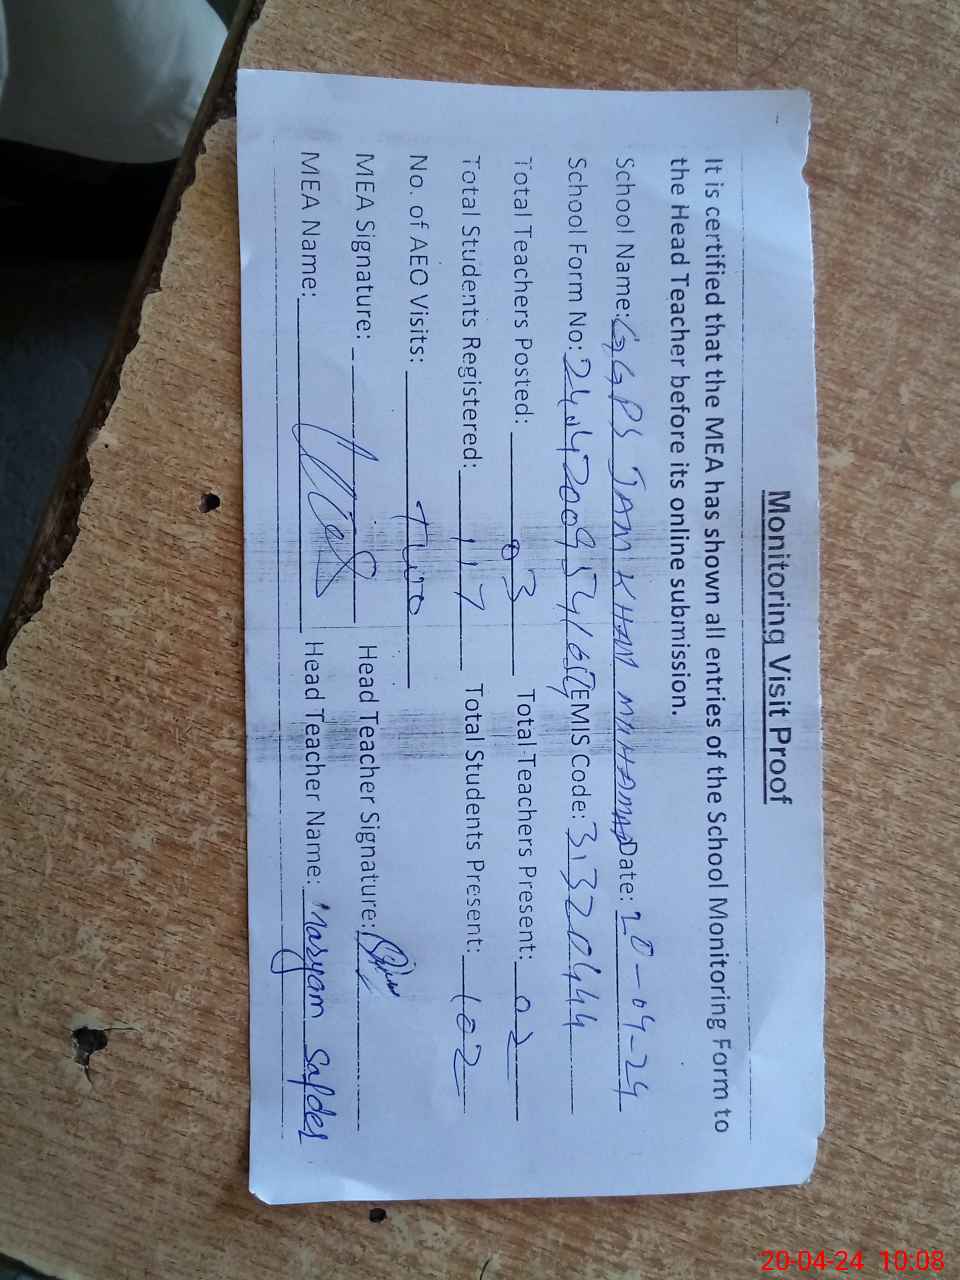 Monitoring Visit Proof
It is certified that the MEA has shown all entries of the School Monitoring Form to
the Head Teacher before its online submission.
School Name: GGPS JAM KHAN MUHAMAD Date: 20-04-24
School Form No: EMIS Code: 31320444
Total Teachers Posted: 03 Total Teachers Present: 02
Total Students Registered: 117 Total Students Present: 102
No. of AEO Visits: Two
MEA Signature: Head Teacher Signature:
MEA Name: Head Teacher Name: Maryam Safder
20-04-24 10:08